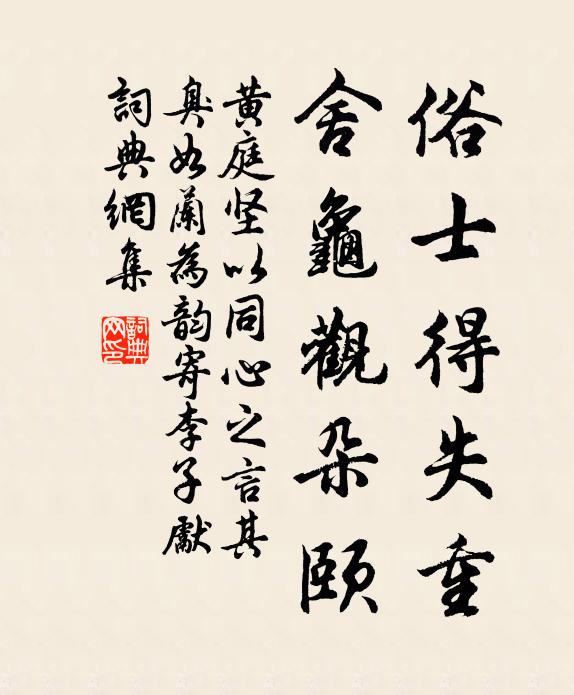 俗士得失重
舍龜觀朵頤
黃庭坚以同心之言其
臭如蘭為韵寄李子獻
詞典網集
詞典网印